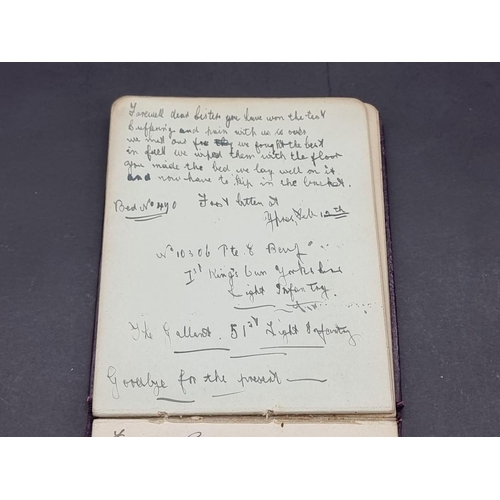 Farewell dear Sister you have won the test
Suffering and pain with us is ours
we met our foe we fought the best
in fact we wiped them with the floor
you made the bed we lay well on it
and now have to slip in the bucket.
Bed No 490 Frost bitten at
Ypres, Feb 12th
No 10306 Pte E
1st King's Own Yorkshire
Light Infantry
The Gallant 51st Light Infantry
Goodbye for the present